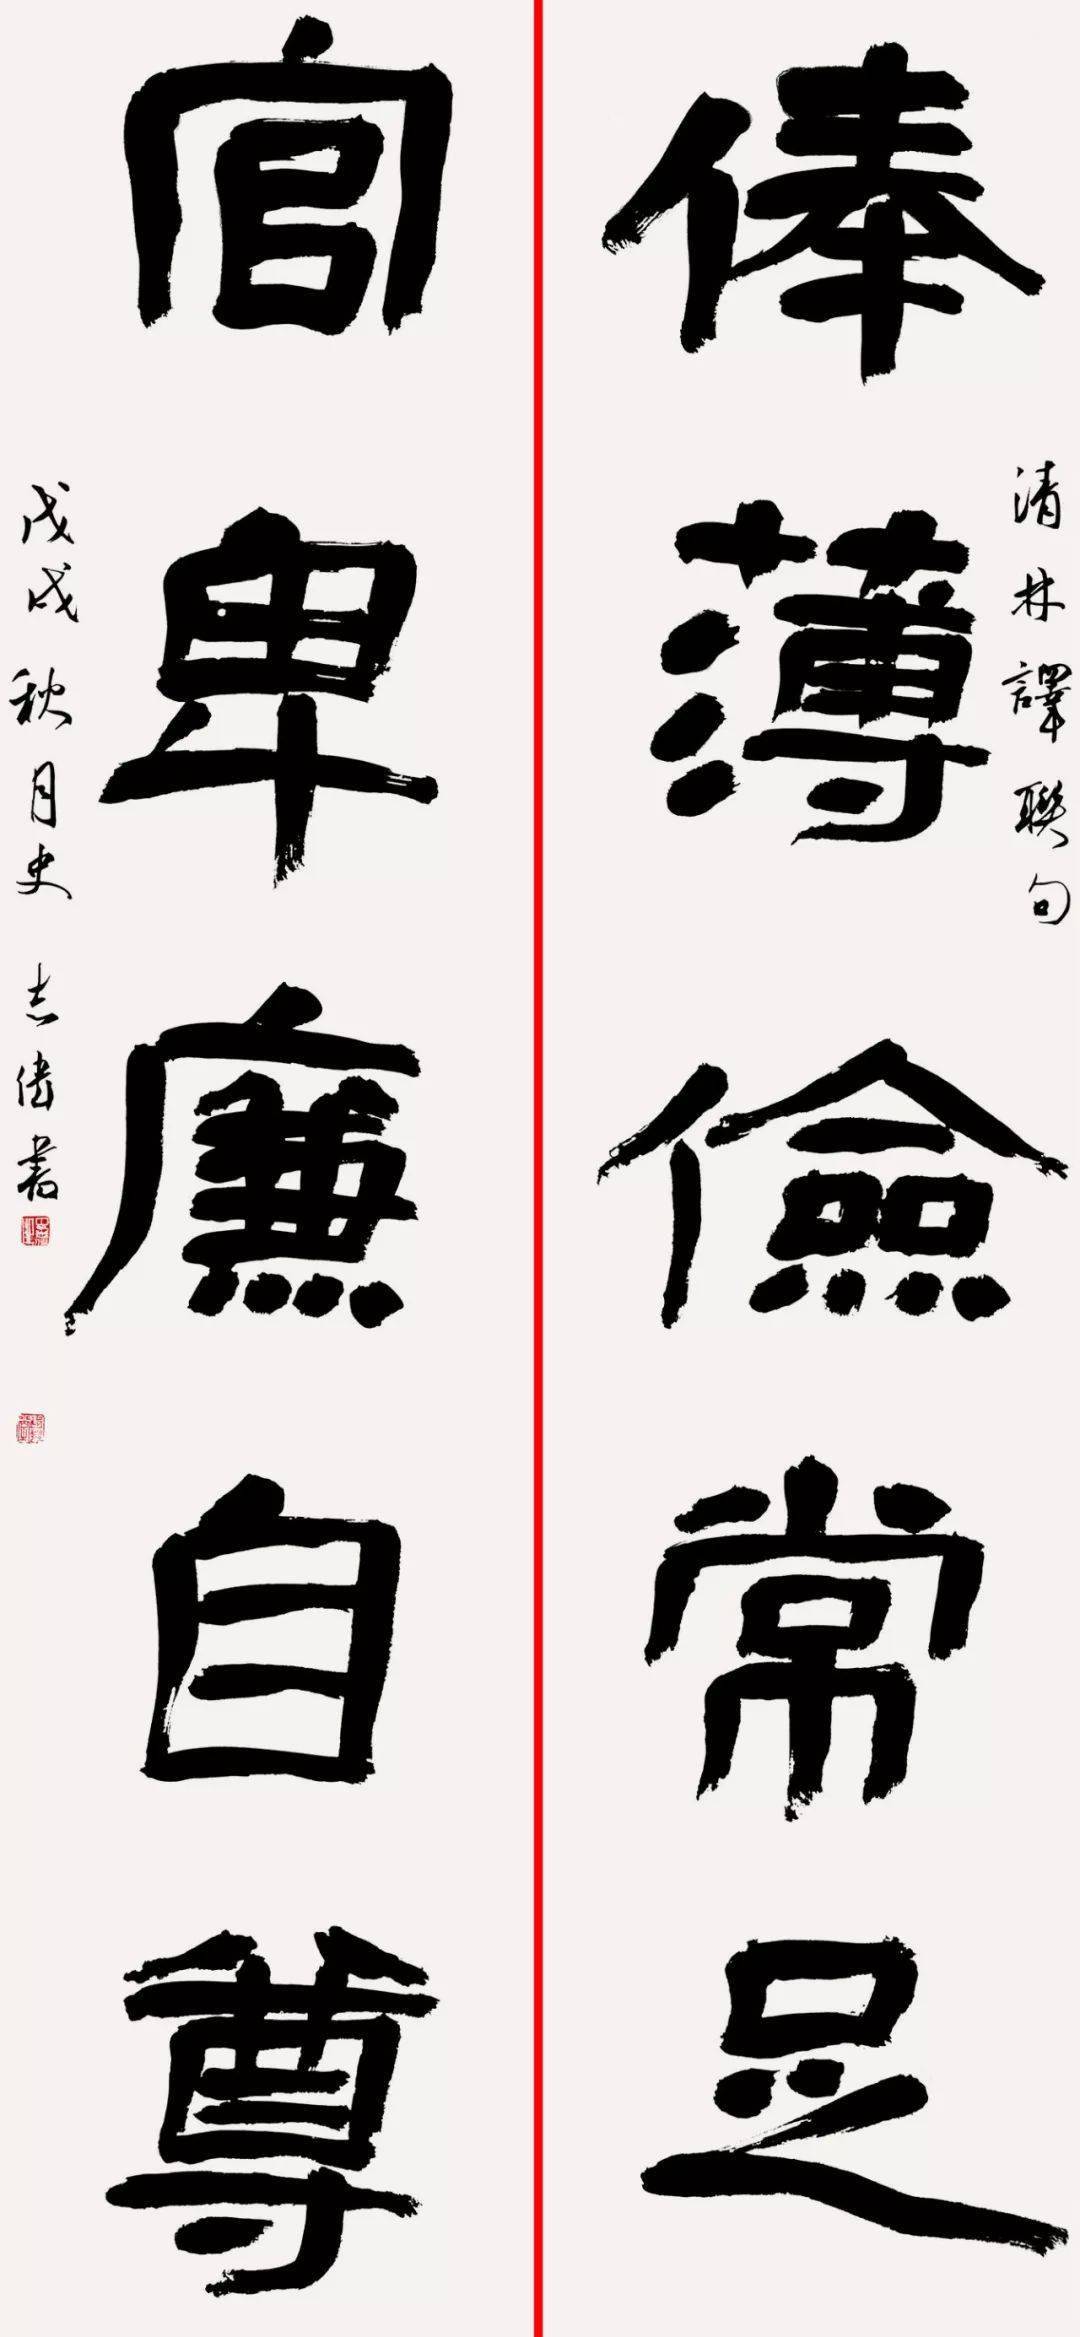 俸薄儉常足
清林譯聯句
官卑廉自尊
戊戌秋月史志偉書